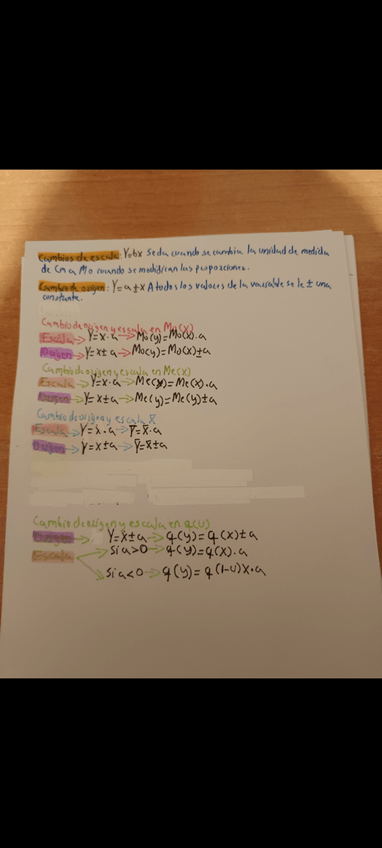 Cambios de escala: Y=bx Se da cuando se cambia la unidad de medida
de Cm a M o cuando se modifican las proporciones.
Cambio de origen: Y=a±x A todos los valores de la variable se le ± una
constante.
Cambio de origen y escala en Mo(X)
Escala → Y=x·a → Mo(y)=Mo(x)·a
Origen → Y=x±a → Mo(y)=Mo(x)±a
Cambio de origen y escala en Me(x)
Escala → Y=x·a → Me(y)=Me(x)·a
Origen → Y=x±a → Me(y)=Me(y)±a
Cambio de origen y escala x̄
Escala → Y=x·a → ȳ=x̄·a
Origen → Y=x±a → ȳ=x̄±a
Cambio de origen y escala en q(U)
Origen → Y=x±a → q(y)=q(x)±a
Escala → si a>0 → q(y)=q(x)·a
→ si a<0 → q(y)=q(1-U)x·a